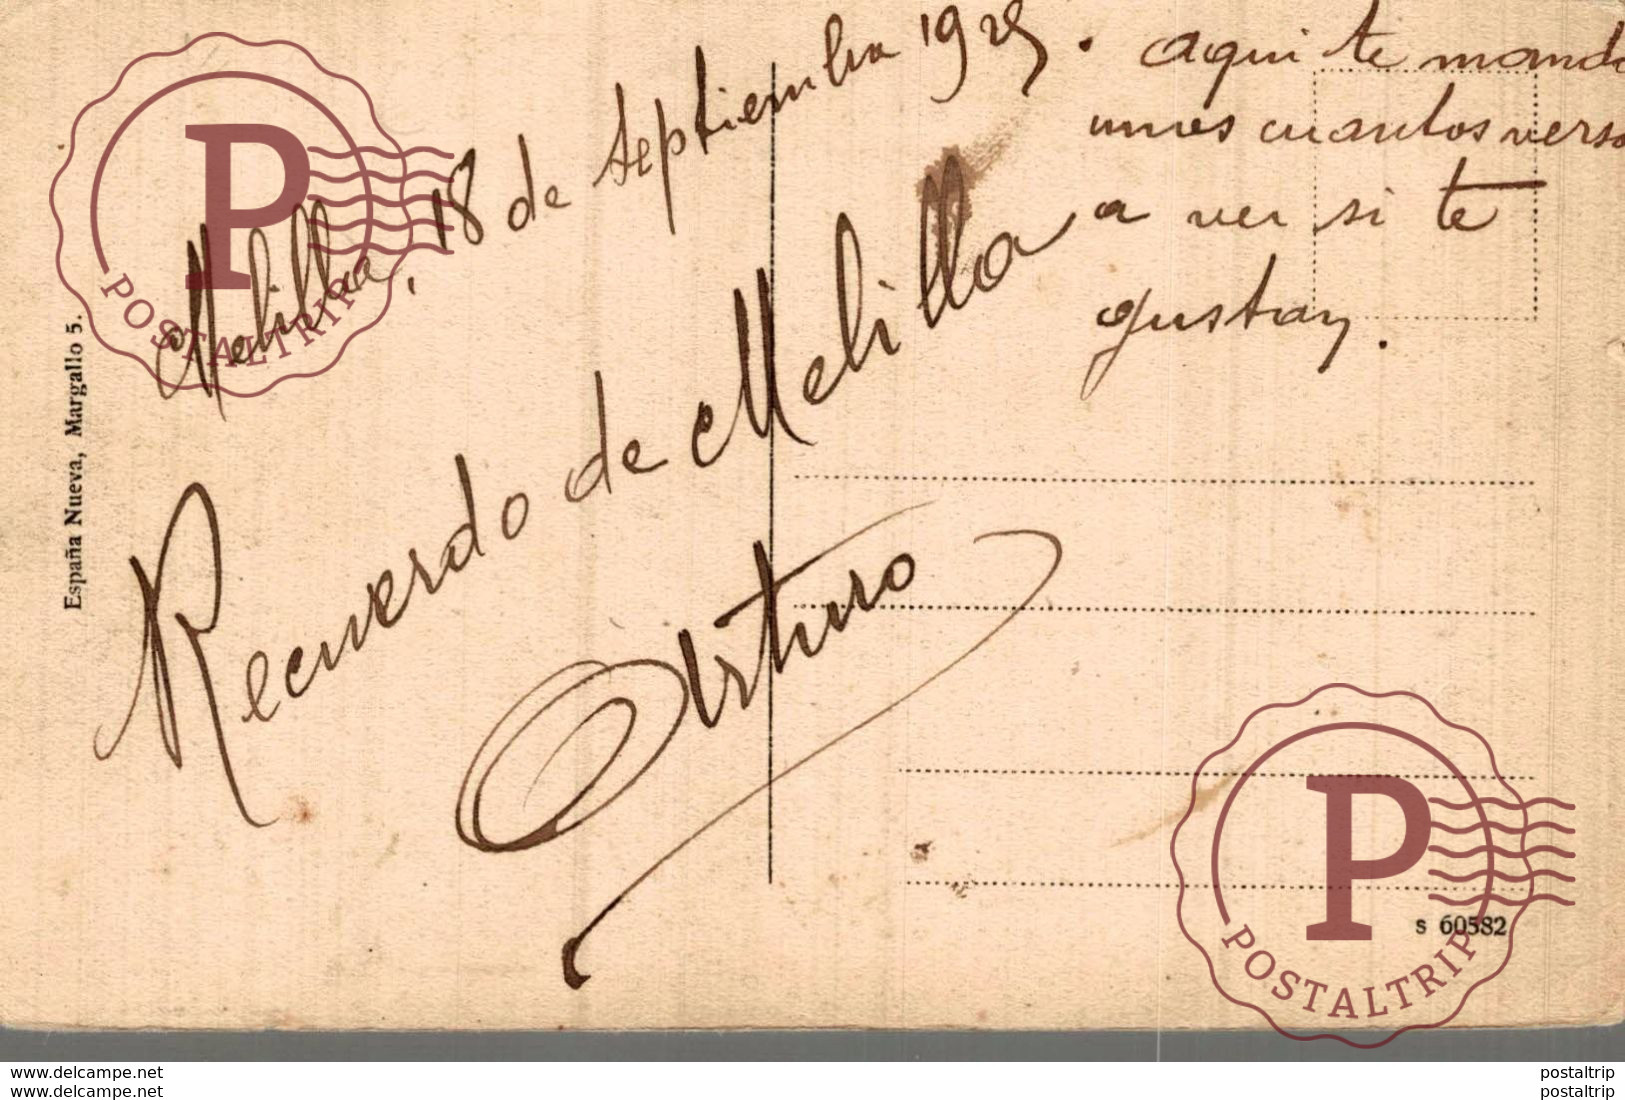 Melilla, 18 de Septiembre 1925.
Recuerdo de Melilla
Arturo
aqui te mando
unos cuantos verso
a ver si te
gustan.
España Nueva, Margallo 5.
s 60582
P
POSTALTRIP
P
POSTALTRIP
www.delcampe.net
www.delcampe.net
postaltrip
postaltrip